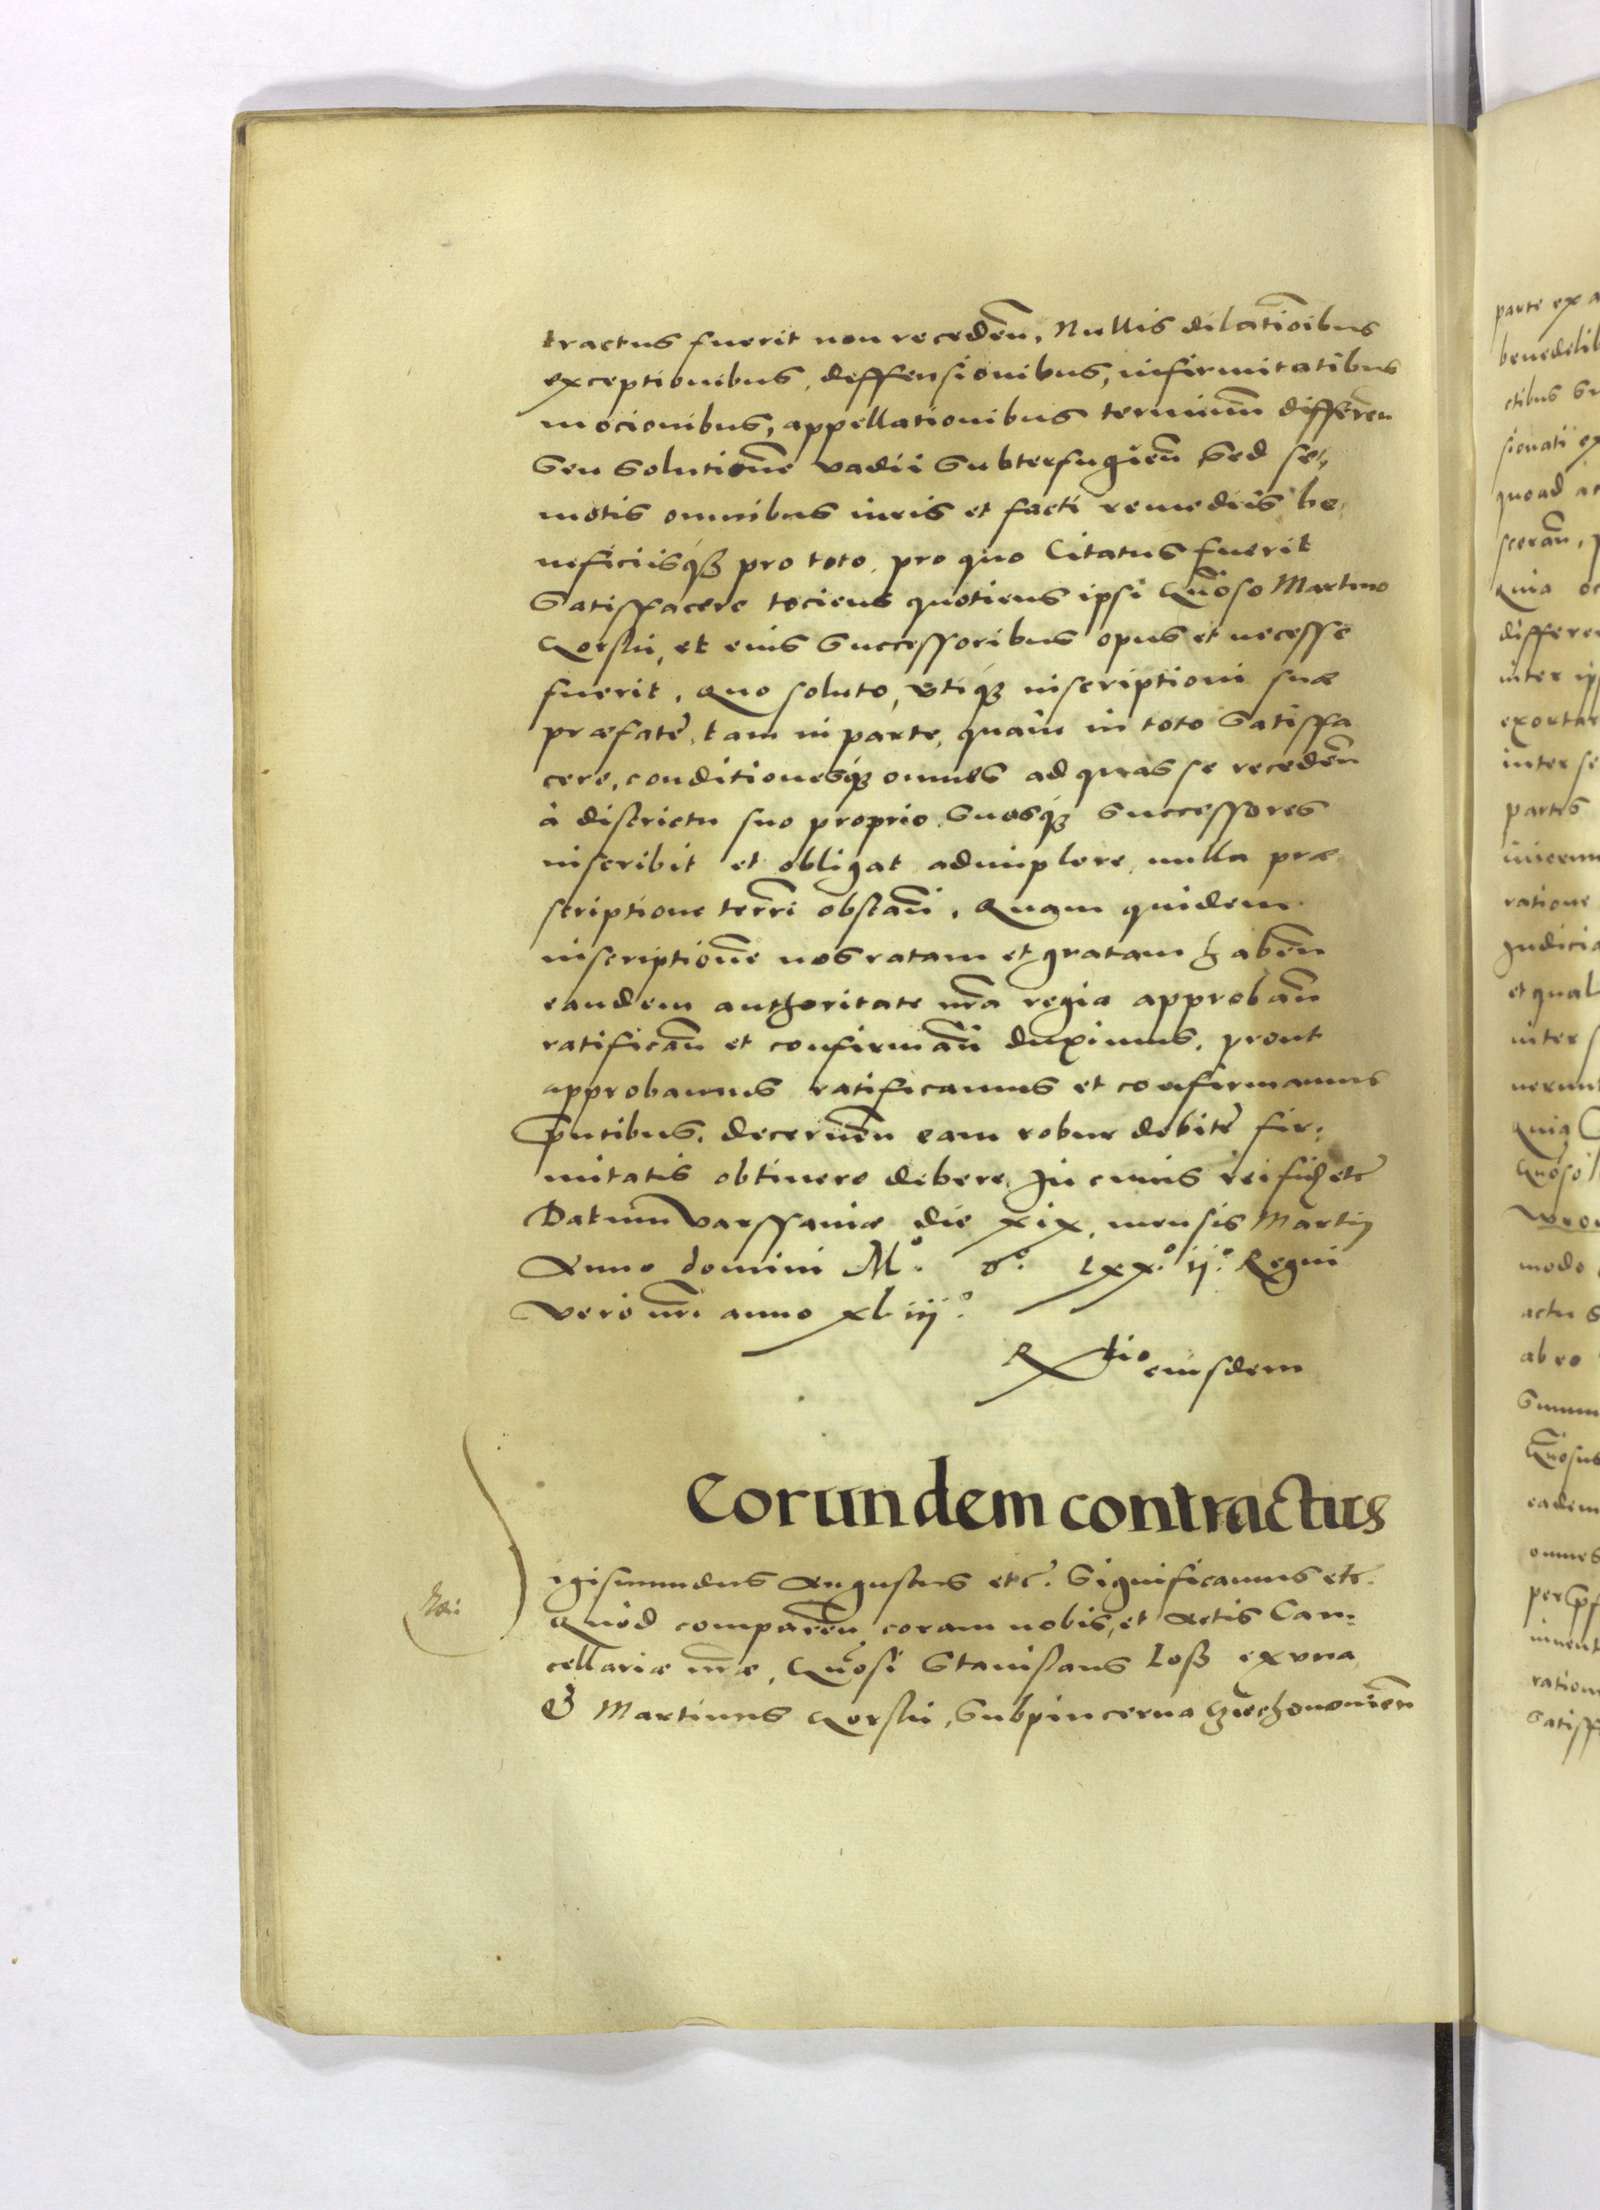 tractus fuerit non receden̄, Nullis dilatiōibus
exceptionibus, deffensionibus, infirmitatibus
mocionibus, appellationibus terminum differen̄
seu solutionē vadii subterfugien̄ sed se,
motis omnibus iuris et facti remediis be,
neficiisq́ꝫ pro toto, pro quo Citatus fuerit
Satisffacere tociens quotiens ipsi Gn̄oso Martino
Gorski, et eius successoribus opus et necesse
fuerit, Quo soluto, Vtiq́ꝫ inscriptioni suæ
præfatę, tam in parte, quàm in toto satisffa
cere, conditionesq́ꝫ omnes ad quas se receden̄
à districtu suo proprio, suosq́ꝫ successores
inscribit et obligat adimplere, nulla præ
scriptione terr̄i obstan̄, Quam quidem
inscriptionē nos ratam et gratam haben̄
eandem authoritate nr̄a regia approban̄
ratifican̄ et confirman̄ duximus, prout
approbamus ratificamus et confirmamus
p̄ntibus, decernen̄ eam robur debitę fir,
mitatis obtinere debere, In cuius rei fid etc
Datum Varssaviæ die xix, mensis Martij
Anno domini M.º d.º Lxx.º ij.º Regni
vero nr̄i anno xliij.º
Rtio eiusdem
Eorundem contractus
igismundus Augustus etc. Significamus etc.
Quod comparen̄ coram nobis, et Actis Can-
cellariæ nr̄æ, Gn̄osi Stanislaus Losz ex vna
& Martinus Gorski, Subpincerna
parte ex a
quoad ac
differe
inter ip
exortar
inter se
partes
ratione
Judicia
et qual
inter s
modo
actu s
ab eo
eadem
omnes